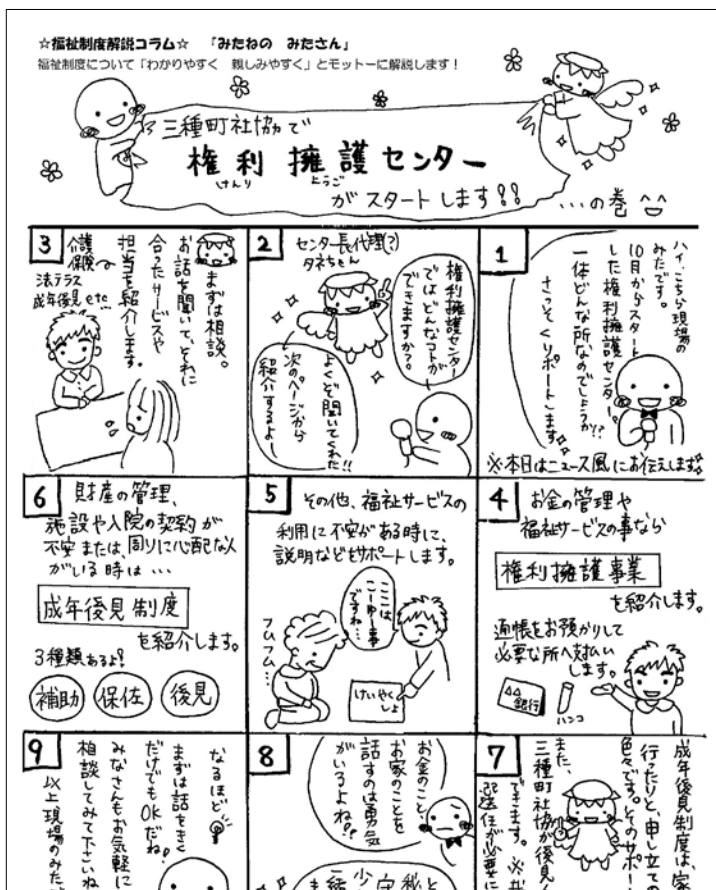 ☆福祉制度解説コラム☆ 『みたねの みたさん』
福祉制度について「わかりやすく 親しみやすく」とモットーに解説します!
三種町社協で
権利擁護センター
けんり ようご
がスタートします!!
…の巻 ^^
1
ハイ、こちら現場の
みたです。
10月からスタート
した権利擁護センター。
一体どんな所なのでしょうか!?
さっそくリポートします。
※本日はニュース風にお伝えします。
2
センター長代理(?)
タネちゃん
権利擁護センター
ではどんなコトが
できますか?。
よくぞ聞いてくれた!!
次のページから
紹介するよ〜
3
まずは相談。
お話を聞いて、それに
合ったサービスや
担当を紹介します。
介護
保険
法テラス
成年後見 etc…
4
お金の管理や
福祉サービスの事なら
権利擁護事業
を紹介します。
通帳をお預かりして
必要な所へ支払い
します。
△△
銀行
ハンコ
5
その他、福祉サービスの
利用に不安がある時に、
説明などをサポートします。
ここは
こーゆー事
ですね…
フムフム…
けいやく
しょ
6
財産の管理、
施設や入院の契約が
不安または、周りに心配な人
がいる時は…
成年後見制度
を紹介します。
3種類あるよ!
補助 保佐 後見
7
成年後見制度は、家
行ったりと、申し立て
色々です。そのサポー
また、
三種町社協が後見
できます。
選任が必要に
8
お金のこと、
お家のことを
話すのは勇気
がいるよね!?
9
なるほど
まずは話をきく
だけでもOKだね!
みなさんもお気軽に
相談してみて下さいね
以上現場のみた